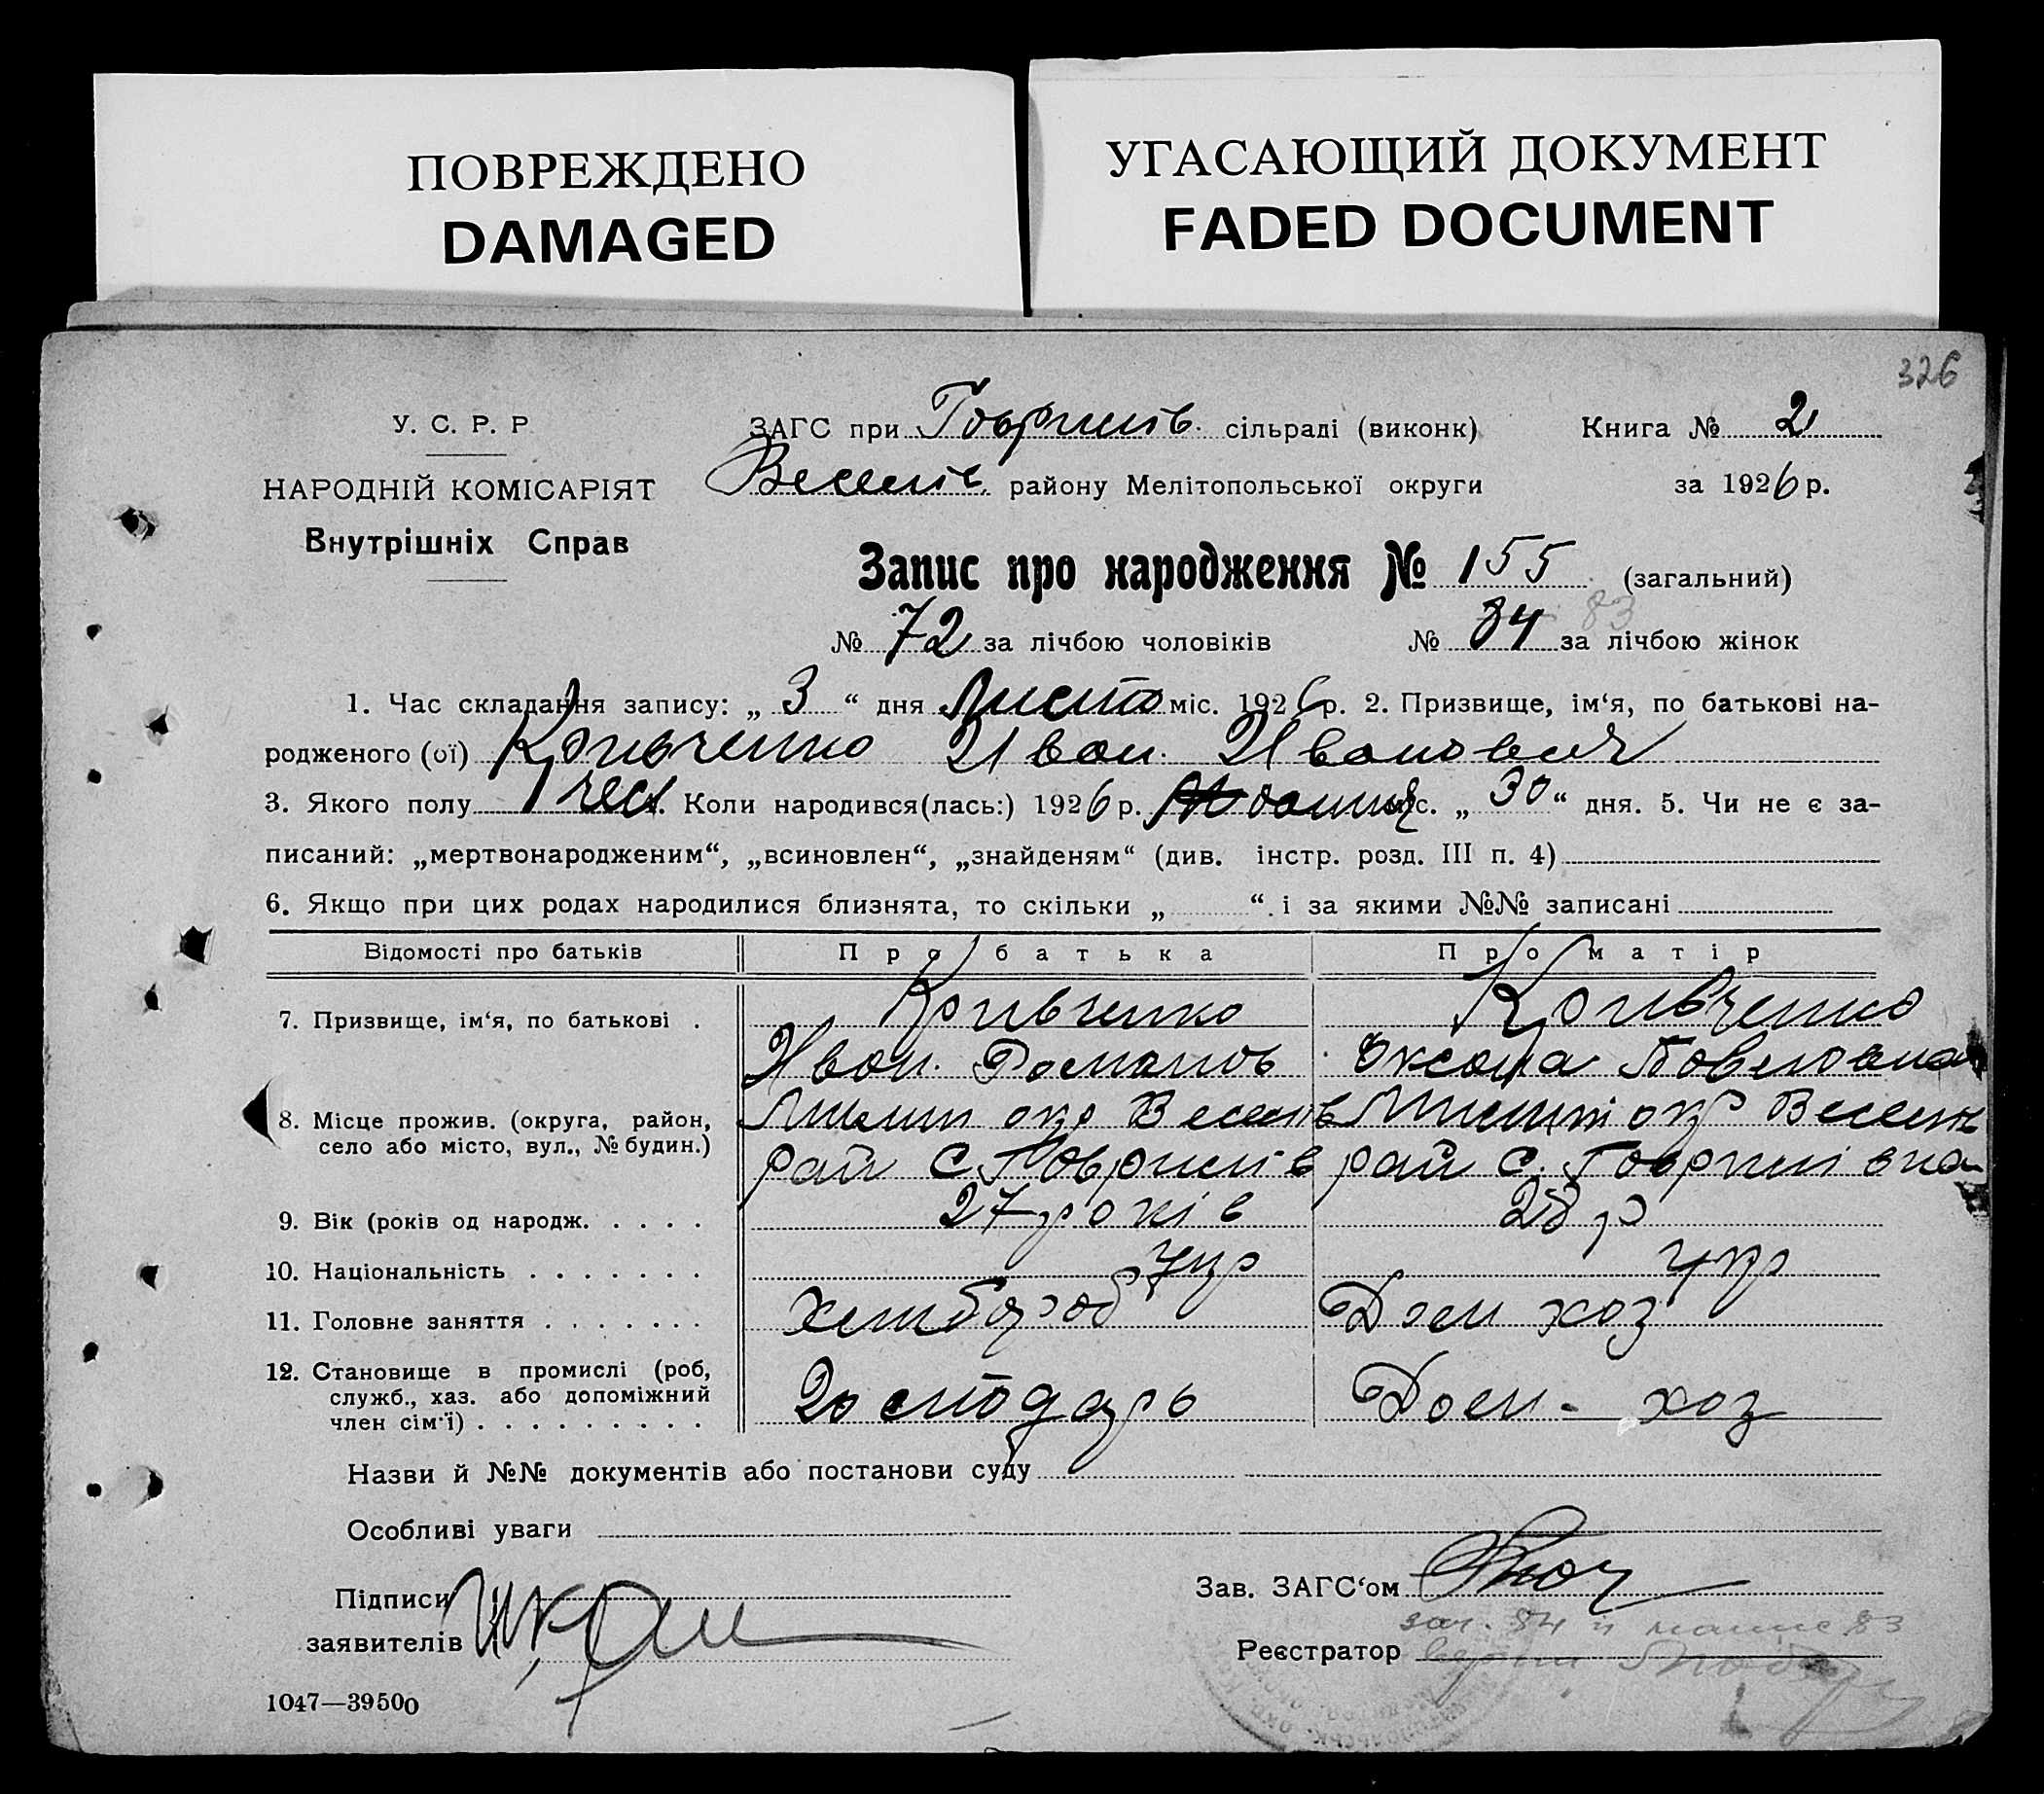 ПОВРЕЖДЕНО
DAMAGED
УГАСАЮЩИЙ ДОКУМЕНТ
FADED DOCUMENT
326
У. С. Р. Р
НАРОДНІЙ КОМІСАРІЯТ
Внутрішніх Справ
ЗАГС при Гаврилів. сільраді (виконк)
Веселів. району Мелітопольської округи
Книга № 2
за 1926 р.
Запис про народження № 155 (загальний)
№ 72 за лічбою чоловіків № 84 83 за лічбою жінок
1. Час складання запису: „ 3 “ дня Листо міс. 1926 р. 2. Призвище, ім‘я, по батькові на-
родженого (ої) Кривченко Иван Иванович
3. Якого полу чол. Коли народився(лась:) 1926 р. міс. „ 30 “ дня. 5. Чи не є за-
писаний: „мертвонародженим“, „всиновлен“, „знайденям“ (див. інстр. розд. III п. 4)
6. Якщо при цих родах народилися близнята, то скільки „ “. і за якими №№ записані
Відомості про батьків Про батька Про матір
7. Призвище, ім‘я, по батькові . Кривченко Кривченко
Иван Романов Оксана Павловна
8. Місце прожив. (округа, район, Мелит окр Веселів Мелит окр Веселів
село або місто, вул., № будин.) рай с. Гаврилів рай с. Гаврилівка
9. Вік (років од народж. . . . . 27 років 28 р
10. Національність . . . . . . . Укр Укр
11. Головне заняття . . . . . . . хлібороб Дом хоз
12. Становище в промислі (роб,
служб., хаз. або допоміжний
член сім‘ї) . . . . . . . . . Господарь Дом- хоз
Назви й №№ документів або постанови суду
Особливі уваги
Підписи
заявителів
Зав. ЗАГС‘ом
Реєстратор
1047—39500